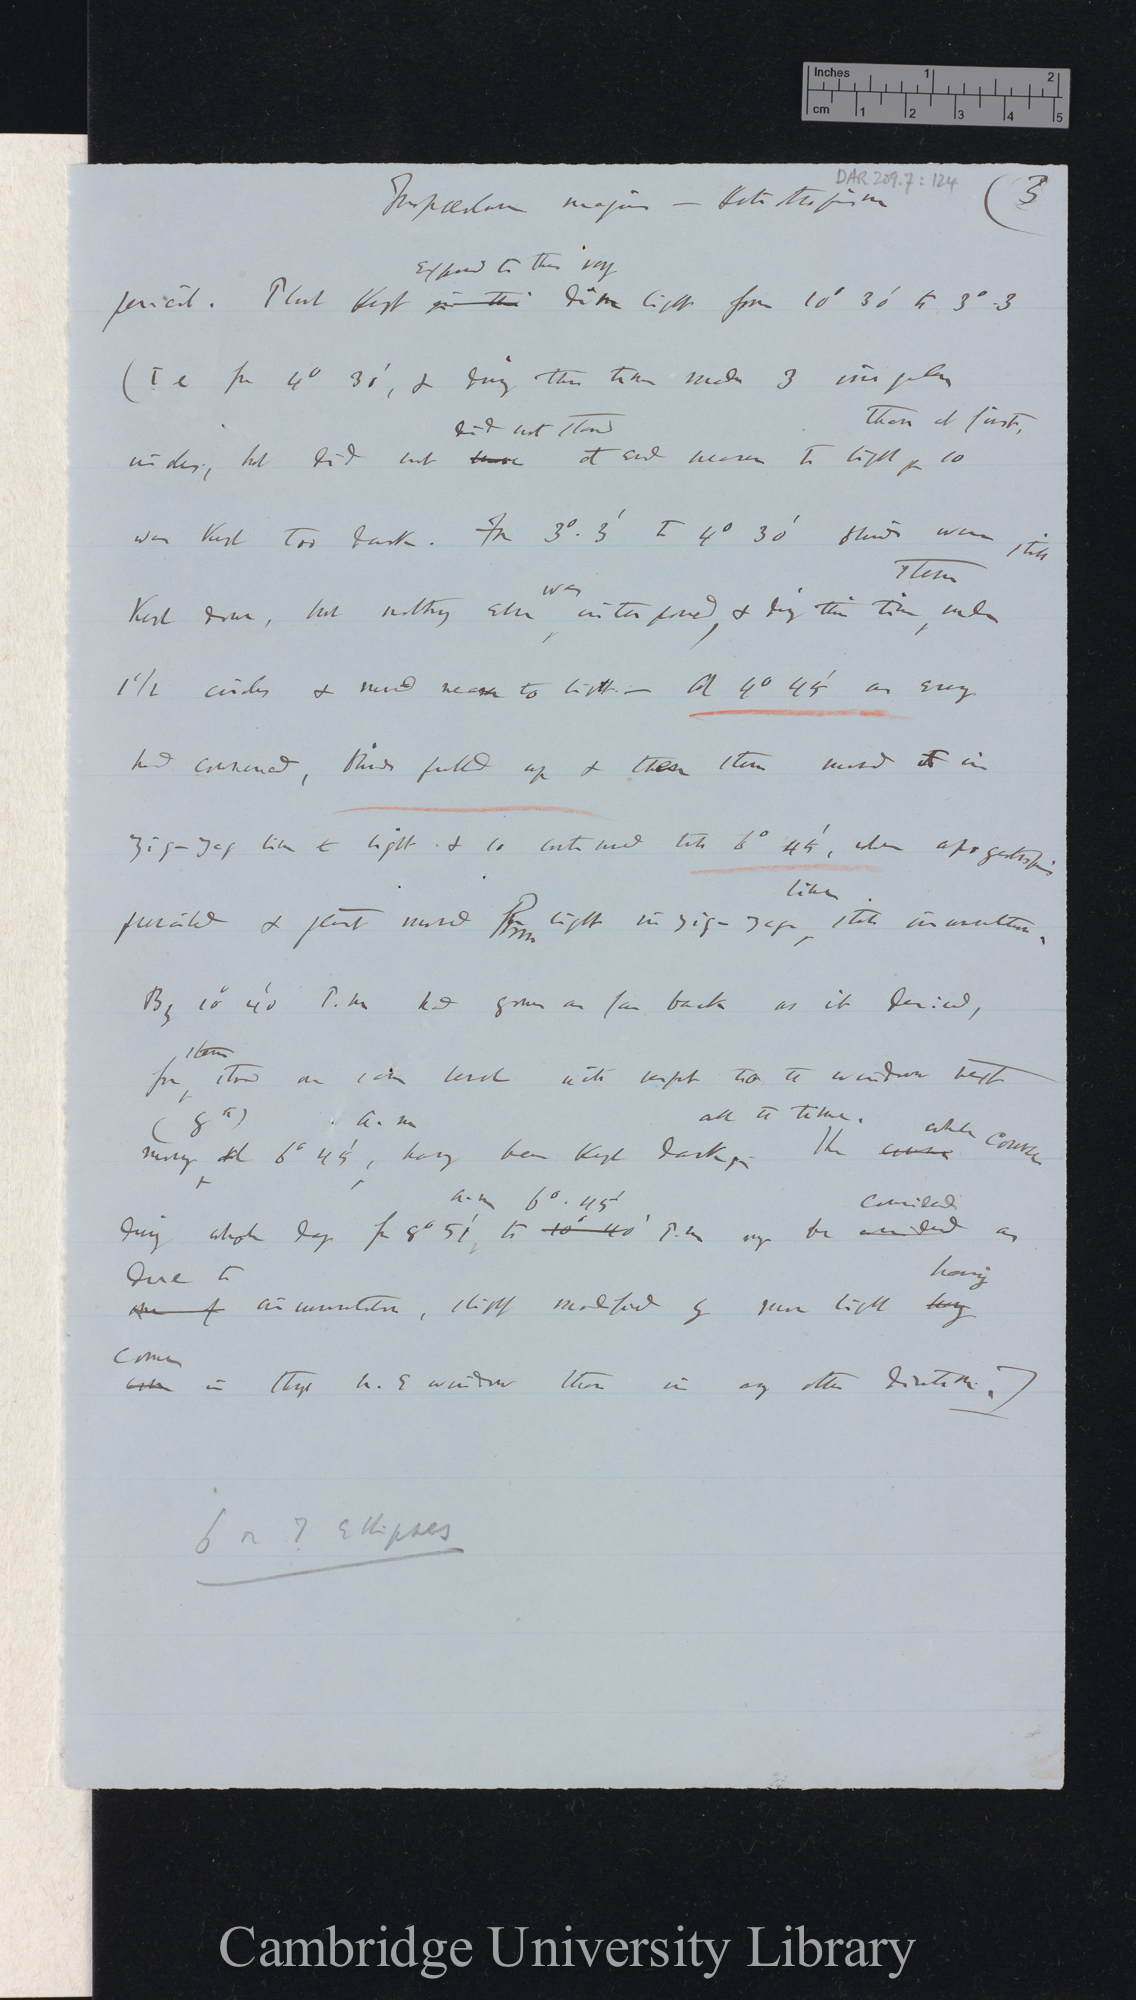 Inches 1 2
cm 1 2 3 4 5
DAR 209.7: 124
Tropæolum majus — Heliotropism (3
exposed to this very
pencil. Plant kept in this dim light from 10° 30' to 3°.3
(I e for 4° 30', & during this time made 3 irregular
did not stand than at first,
circles, but did not have at end nearer to light, so
was kept too dark. Fr 3°. 3' to 4° 30' blinds were still
was stem
kept down, but nothing else interposed, & during this time, made
1 1/2 circles & moved nearer to light.— At 4° 45' as evening
had commenced, blinds pulled up & then stem moved to in
zig-zag line to light & so continued till 6° 45', when apogeotropism
line
prevailed & plant moved from light in zig-zag, still circumnutation.
By 10° 40' P.m had gone as far back as it desired,
stem
for, stood on same level with respect to the window next
(8th) a.m all the time.
morning, at 6° 45', having been kept dark, The course when course
a.m 6°. 45' considered
during whole day fr 8° 51', to 10° 40' P.m may be considered as
due to having
circumnutation, slightly modified by more light
come
in thro N.E window than in any other direction.)
6 or 7 Ellipses
Cambridge University Library